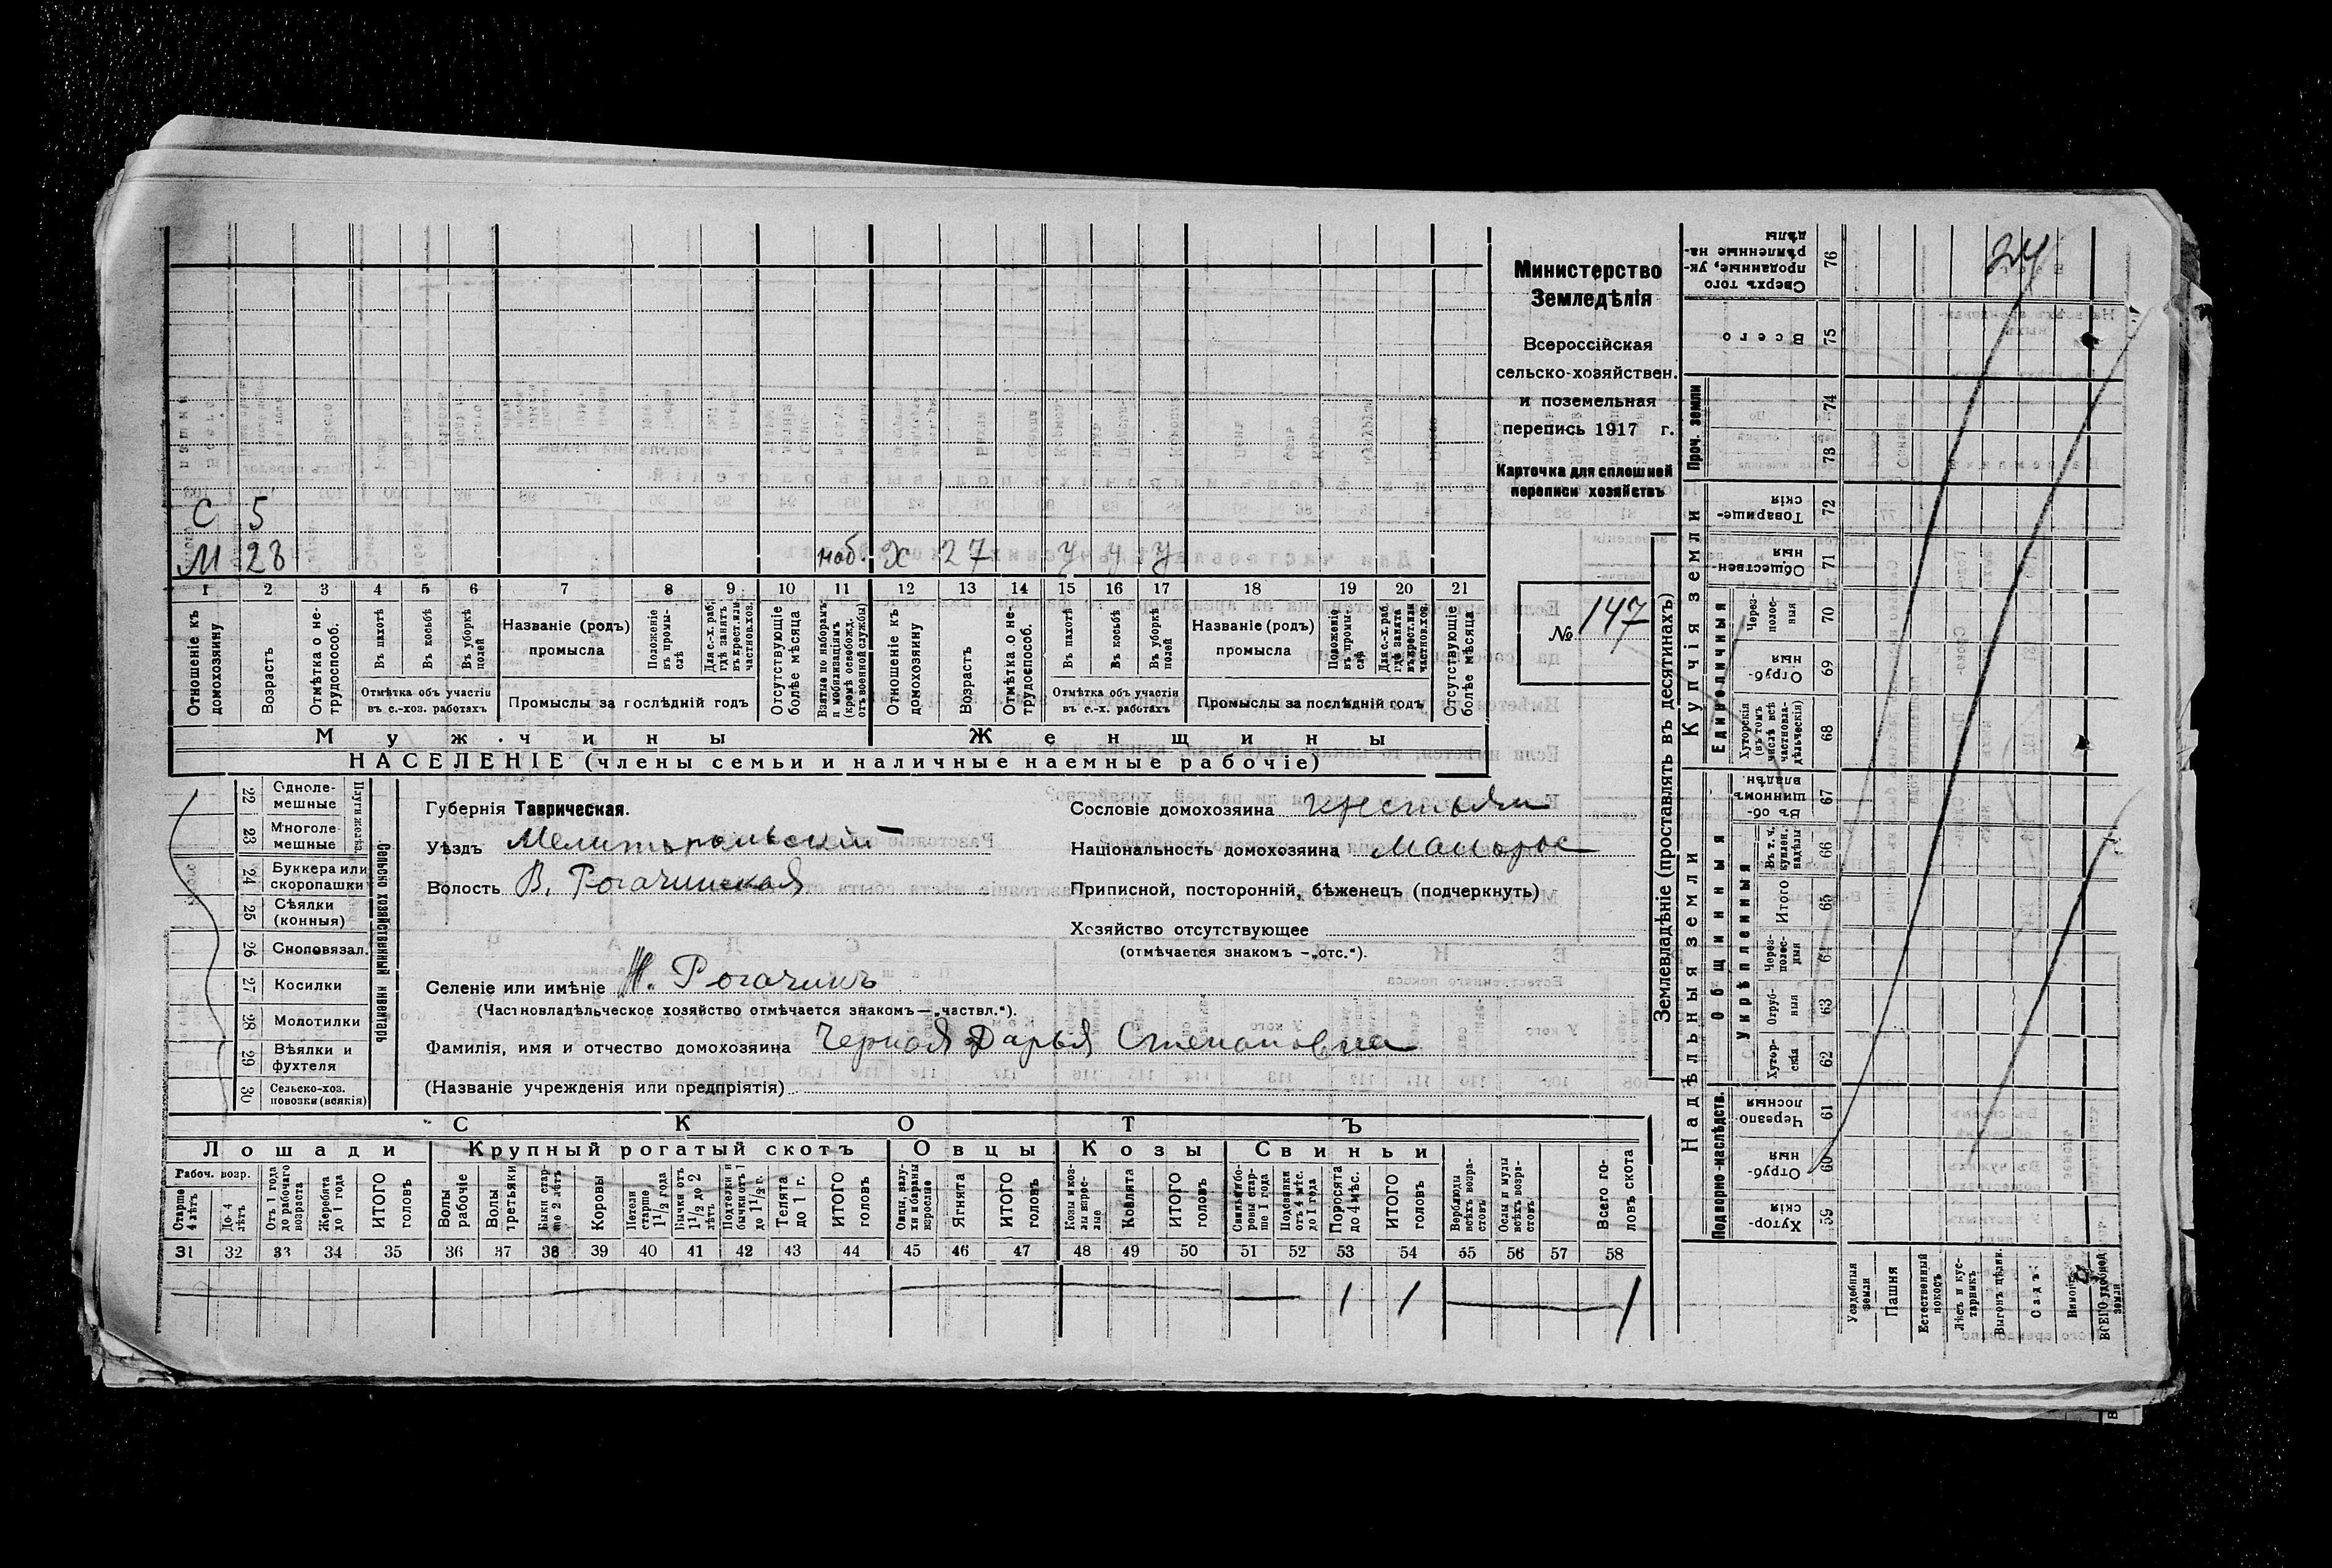 Министерство
Земледѣлія
Всероссійская
сельско-хозяйствен.
и поземельная
перепись 1917 г.
Карточка для сплошной
переписи хозяйствъ
№ 147
С 5
М 28 моб. Х 27 у у у
1 2 3 4 5 6 7 8 9 10 11 12 13 14 15 16 17 18 19 20 21
Отношеніе къ домохозяину
Возрастъ
Отмѣтка о нетрудоспособ.
Въ пахотѣ
Въ косьбѣ
Въ уборкѣ полей
Отмѣтка объ участіи
въ с.-хоз. работахъ
Названіе (родъ)
промысла
Положеніе въ промыслѣ
Для с.-х. раб., гдѣ занятъ въ крест. или частнов. хоз.
Промыслы за послѣдній годъ
Отсутствующіе болѣе мѣсяца
Взятые по наборамъ и мобилизаціямъ (кромѣ освобожд. отъ военной службы)
Отношеніе къ домохозяину
Возрастъ
Отмѣтка о нетрудоспособ.
Въ пахотѣ
Въ косьбѣ
Въ уборкѣ полей
Отмѣтка объ участіи
въ с.-х. работахъ
Названіе (родъ)
промысла
Положеніе въ промыслѣ
Для с.-х. раб. гдѣ занята въ крест. или частнов. хоз.
Промыслы за послѣдній годъ
Отсутствующіе болѣе мѣсяца
Мужчины Женщины
НАСЕЛЕНІЕ (члены семьи и наличные наемные рабочіе)
22 Однолемешные
23 Многолемешные
24 Буккера или скоропашки
25 Сѣялки (конныя)
26 Сноповязал.
27 Косилки
28 Молотилки
29 Вѣялки и фухтеля
30 Сельско-хоз. повозки (всякія)
Сельско хозяйственный инвентарь
Губернія Таврическая.
Уѣздъ Мелитопольскій
Волость В. Рогачинская
Сословіе домохозяина крестьян
Національность домохозяина Малорос
Приписной, посторонній, бѣженецъ (подчеркнуть)
Хозяйство отсутствующее
(отмѣчается знакомъ —„отс.“).
Селеніе или имѣніе Н. Рогачикъ
(Частновладѣльческое хозяйство отмѣчается знакомъ—„частвл.“).
Фамилія, имя и отчество домохозяина Черная Дарья Степановна
(Названіе учрежденія или предпріятія)
СКОТЪ
Лошади Крупный рогатый скотъ Овцы Козы Свиньи
Рабоч. возр.
Старше 4 лѣтъ
До 4 лѣтъ
Отъ 1 года до рабочаго возраста
Жеребята до 1 года
ИТОГО головъ
Волы рабочіе
Волы третьяки
Быки старше 2 лѣтъ
Коровы
Нетели старше 1½ года
Бычки отъ 1½ до 2 лѣтъ
Подтелки и бычки отъ 1 до 1½ г.
Телята до 1 г.
ИТОГО головъ
Овцы, валухи и бараны взрослые
Ягнята
ИТОГО головъ
Козы и козлы взрослые
Козлята
ИТОГО головъ
Свиньи и боровы старше 1 года
Подсвинки отъ 4 мѣс. до 1 года
Поросята до 4 мѣс.
ИТОГО головъ
Верблюды всѣхъ возрастовъ
Ослы и мулы всѣхъ возрастовъ
Всего головъ скота
31 32 33 34 35 36 37 38 39 40 41 42 43 44 45 46 47 48 49 50 51 52 53 54 55 56 57 58
1 1 1
Землевладѣніе (проставлять въ десятинахъ)
Надѣльныя земли
Купчія земли
Проч. земли
Подворно-наслѣдств.
Общинныя
Укрѣпленныя
Единоличныя
76 Сверхъ того проданные, укрѣпленные надѣлы
75 Всего
74
73
72 Товарищескія
71 Общественныя
70 Черезполосныя
69 Отрубныя
68 Хуторскія (въ томъ числѣ всѣ частновладѣльческія)
67 Въ общинномъ владѣн.
66 Въ т. ч. куплен. надѣлы
65 Итого
64 Черезполосныя
63 Отрубныя
62 Хуторскія
61 Черезполосныя
60 Отрубныя
59 Хуторскія
Усадебныя земли
Пашня
Естественный покосъ
Лѣсъ и кустарникъ
Выгонъ цѣлин.
Садъ
ВСЕГО удобной земли